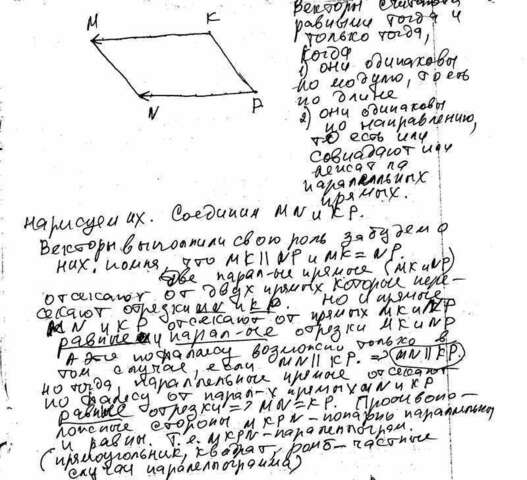 M
K
N
P
Векторы считаются
равными тогда и
только тогда,
когда
1) они одинаковы
по модулю, то есть
по длине
2) они одинаковы
по направлению,
то есть или
совпадают или
лежат на
параллельных
прямых.
Нарисуем их. Соединим MN и KP.
Векторы выполнили свою роль забудем о
них, помня, что MK || NP и MK = NP.
Две парал-ые прямые (MK и NP)
отсекают от двух прямых которые пере-
секают отрезки MN и KP. Но и прямые
MN и KP отсекают от прямых MK и NP
равные и парал-ые отрезки MK и NP
А это по фалесу возможно только в
том случае, если MN || KP. => MN || KP.
Но тогда, параллельные прямые отсекают
по фалесу от парал-х прямых MN и KP
равные отрезки => MN = KP. Противопо-
ложные стороны MKPN - попарно параллельны
и равны. Т.е. MKPN - параллелограм.
(прямоугольник, квадрат, ромб - частные
случаи параллелограмма)